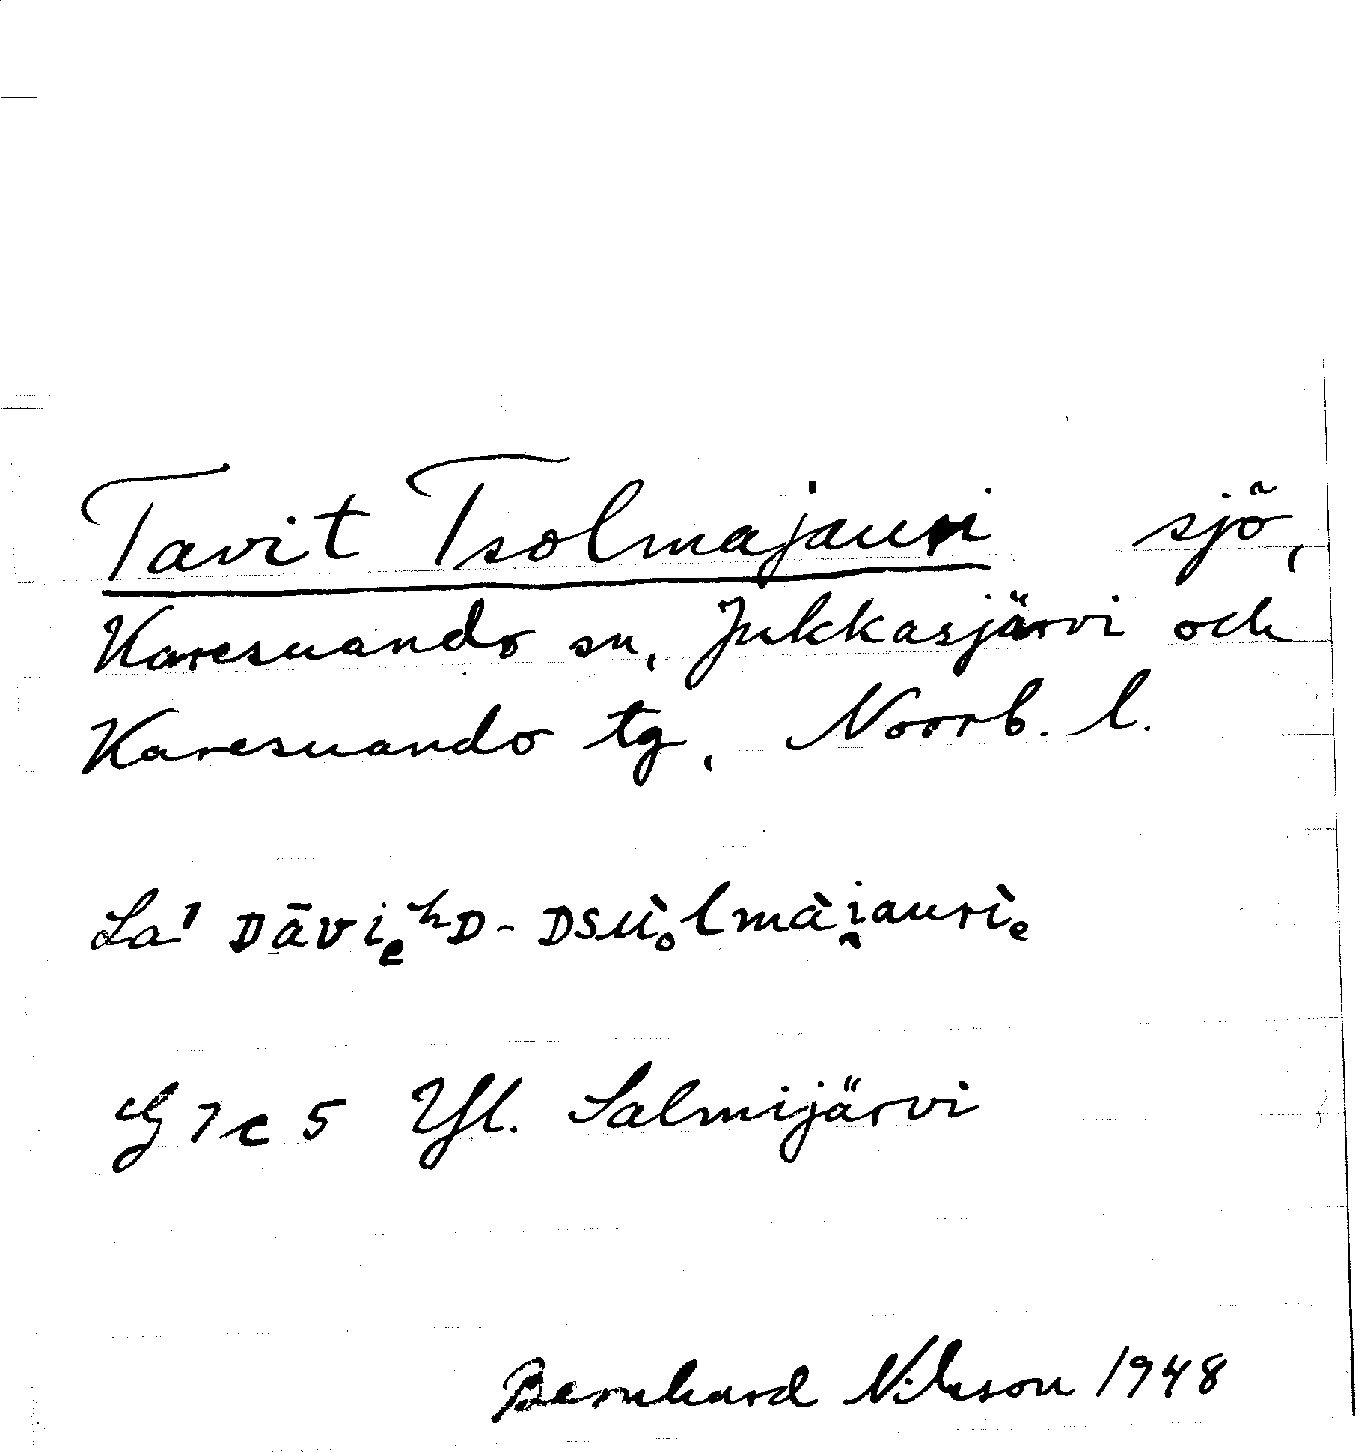 Tavit Tsolmajauri sjö,
Karesuando sn, Jukkasjärvi och
Karesuando tg, Norrb. l.
La¹ ᴅāvi̥ₑʰᴅ-ᴅsu̇ₒlmài̯aurìₑ
G 7 c 5 Yl. Salmijärvi
Bernhard Nilsson 1948